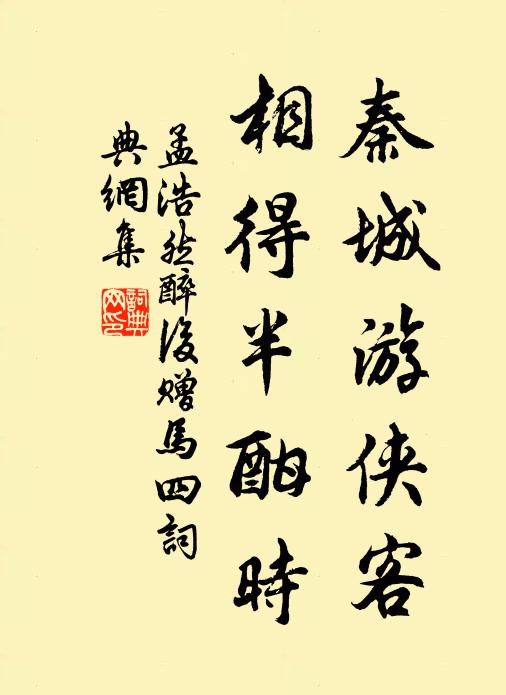 秦城游侠客
相得半酣時
孟浩然醉後赠馬四詞
典網集
詞典網印